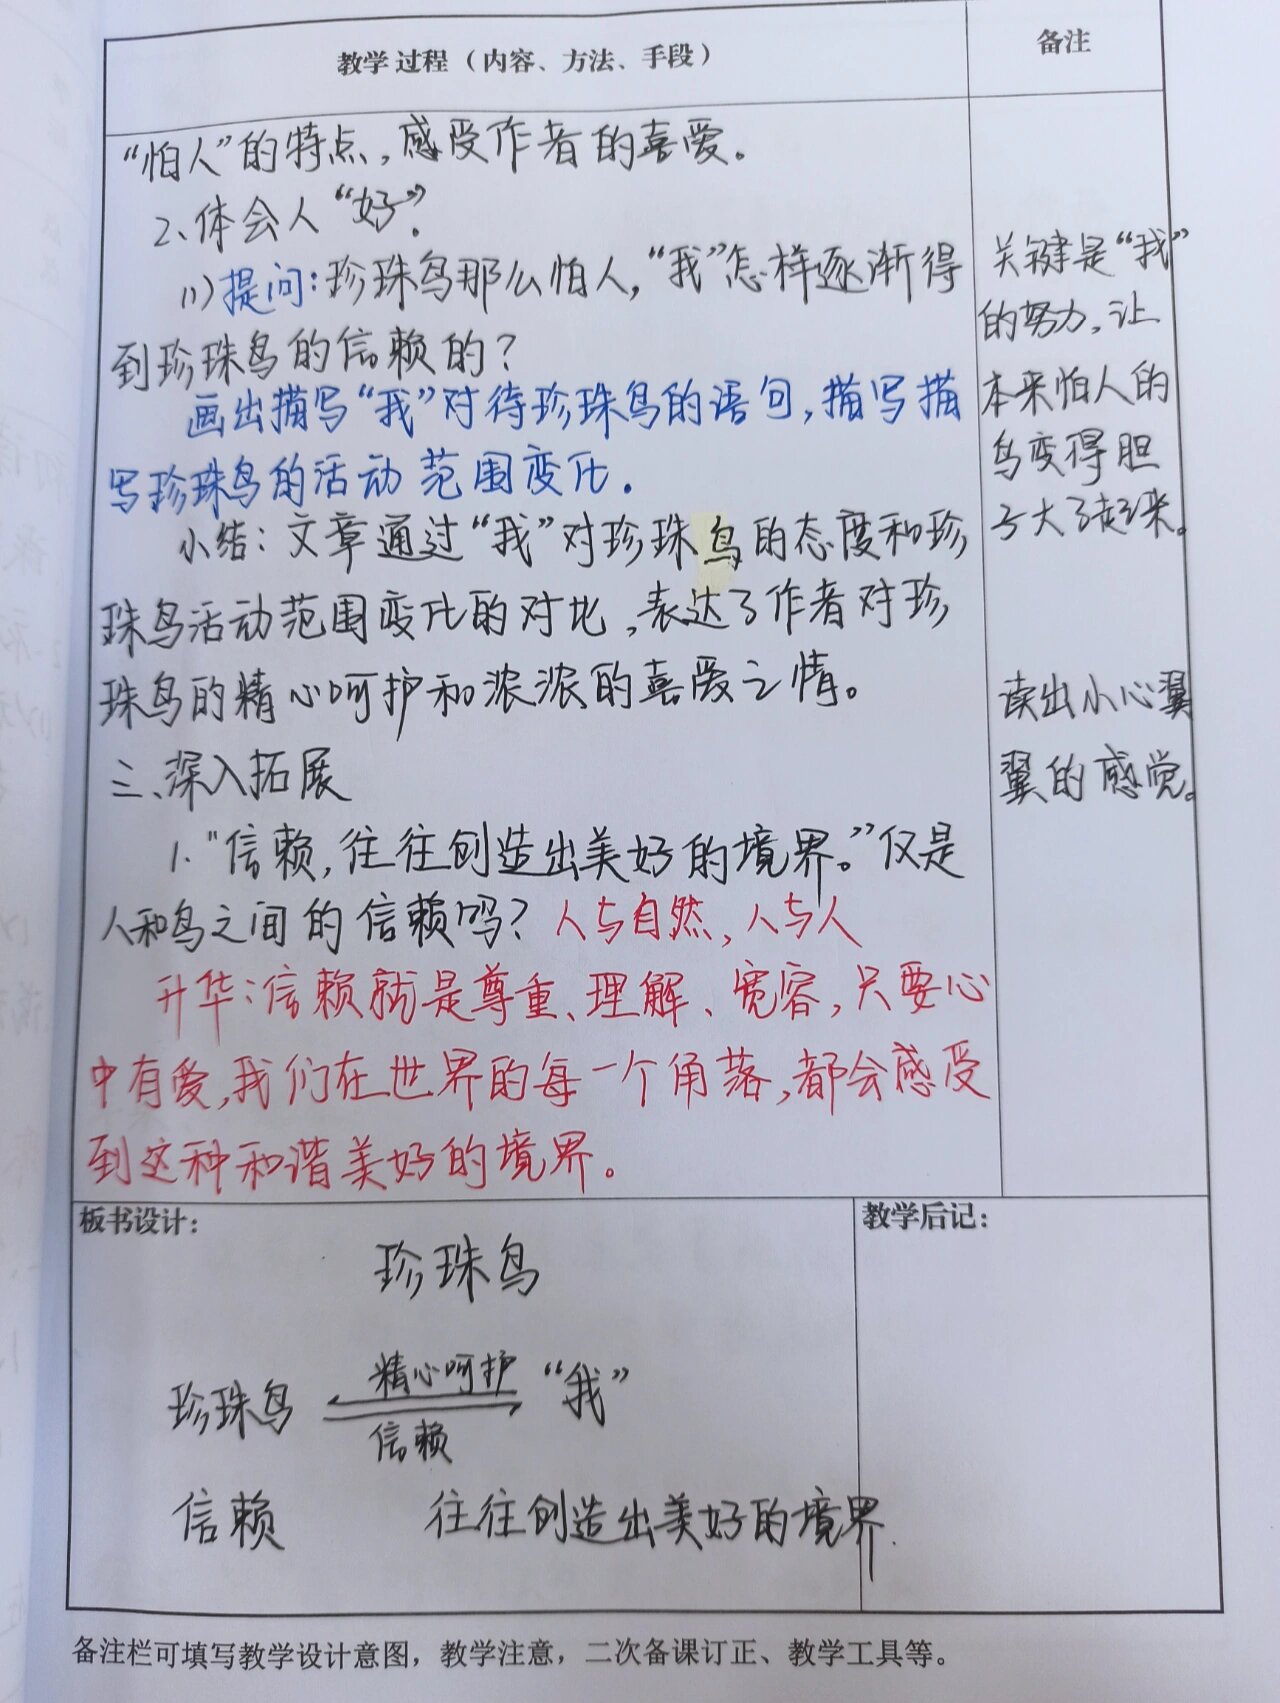 教学过程（内容、方法、手段）
备注
“怕人”的特点，感受作者的喜爱。
2、体会人“好”。
(1)提问：珍珠鸟那么怕人，“我”怎样逐渐得
到珍珠鸟的信赖的？
画出描写“我”对待珍珠鸟的语句，描写描
写珍珠鸟的活动范围变化.
小结：文章通过“我”对珍珠鸟的态度和珍
珠鸟活动范围变化的对比，表达了作者对珍
珠鸟的精心呵护和浓浓的喜爱之情。
三、深入拓展
1.“信赖，往往创造出美好的境界。”仅是
人和鸟之间的信赖吗？人与自然，人与人
升华：信赖就是尊重、理解、宽容，只要心
中有爱，我们在世界的每一个角落，都会感受
到这种和谐美好的境界。
关键是“我”
的努力，让
本来怕人的
鸟变得胆
子大了起来。
读出小心翼
翼的感觉。
板书设计：
珍珠鸟
精心呵护
珍珠鸟 “我”
信赖
信赖 往往创造出美好的境界.
教学后记：
备注栏可填写教学设计意图，教学注意，二次备课订正、教学工具等。